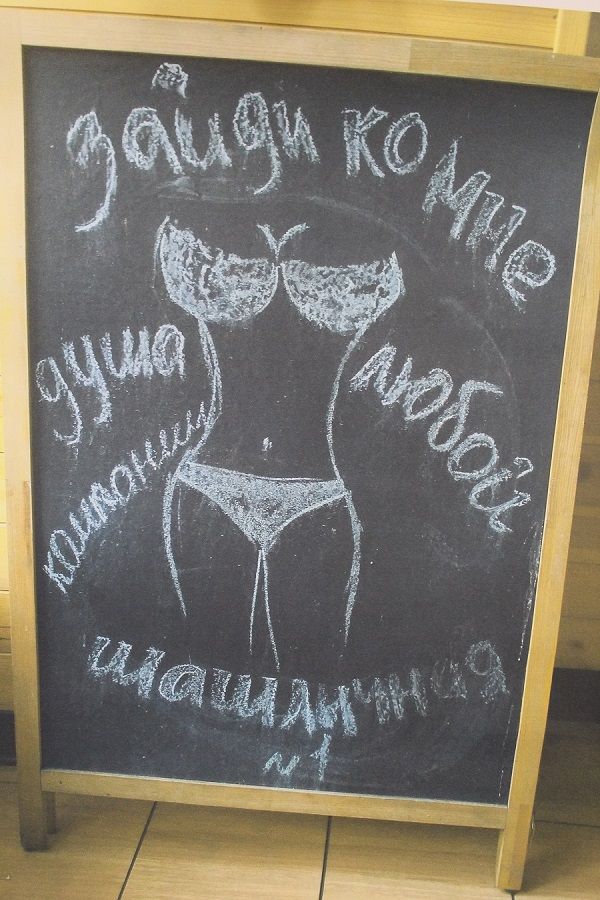 зайди ко мне
душа любой
компании
шашлычная
№1